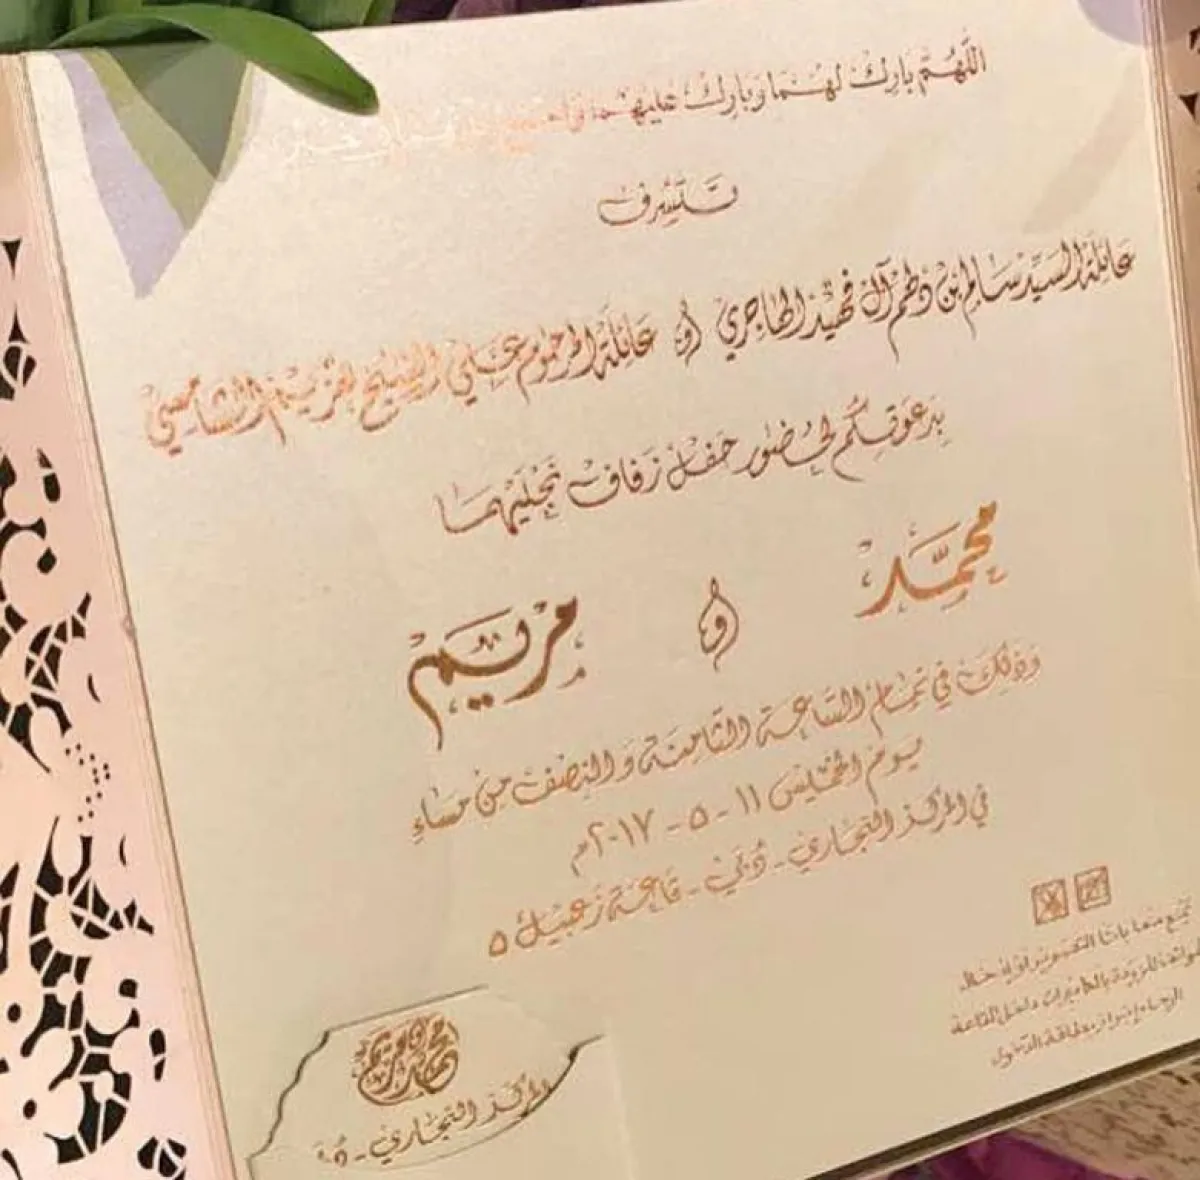 اللَّهُمَّ بارِك لهُمَا وَبارِك عليهما
تتشرف
عائلة السيّد سالم ابن دلهم آل فهيد الهاجري و عائلة المرحوم علي الشامسي
بدعوتكم لحضور حفل زفاف نجليهما
محمّد و مريم
وذلك في تمام السّاعة الثّامنة والنصف من مساءِ
يوم الخميس ١١ - ٥ - ٢٠١٧م
في المركز التجاري - دُبي - قاعة زعبيل ٥
يمنع منعا باتا التصوير أو إدخال
الهواتف المزودة بالكاميرات داخل القاعة
الرجاء إبراز بطاقة الدخول
محمد و مريم
المركز التجاري - دُ